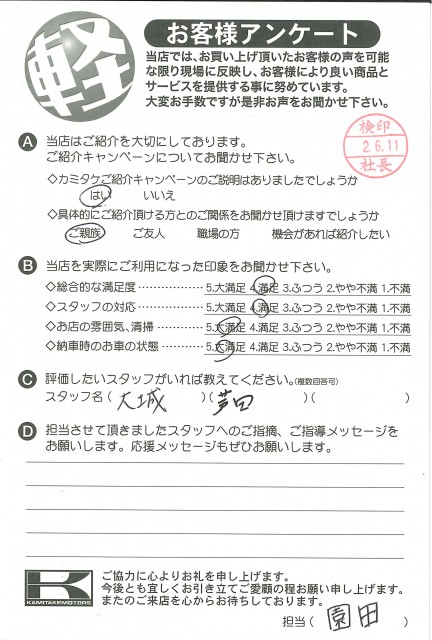 軽
お客様アンケート
当店では、お買い上げ頂いたお客様の声を可能
な限り現場に反映し、お客様により良い商品と
サービスを提供する事に努めています。
大変お手数ですが是非お声をお聞かせ下さい。
A 当店はご紹介を大切にしております。
ご紹介キャンペーンについてお聞かせ下さい。
検印
2.6.11
社長
◇カミタケご紹介キャンペーンのご説明はありましたでしょうか
はい いいえ
◇具体的にご紹介頂ける方とのご関係をお聞かせ頂けますでしょうか
ご親族 ご友人 職場の方 機会があれば紹介したい
B 当店を実際にご利用になった印象をお聞かせ下さい。
◇総合的な満足度・・・・・・・・・・・・5.大満足 4.満足 3.ふつう 2.やや不満 1.不満
◇スタッフの対応・・・・・・・・・・・・5.大満足 4.満足 3.ふつう 2.やや不満 1.不満
◇お店の雰囲気、清掃・・・・・・・・5.大満足 4.満足 3.ふつう 2.やや不満 1.不満
◇納車時のお車の状態・・・・・・・・5.大満足 4.満足 3.ふつう 2.やや不満 1.不満
C 評価したいスタッフがいれば教えてください。(複数回答可)
スタッフ名 ( 大城 )( 芦田 )( )
D 担当させて頂きましたスタッフへのご指摘、ご指導メッセージを
お願いします。応援メッセージもぜひお願いします。
KAMITAKEMOTORS
ご協力に心よりお礼を申し上げます。
今後とも宜しくお引き立てご愛顧の程お願い申し上げます。
またのご来店を心からお待ちしております。
担当 ( 園田 )